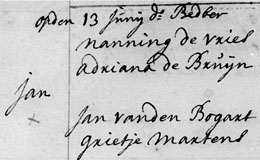 opden 13 Junÿ ds Bedber
nanning de vriel
adriana de Bruÿn
jan
Jan vanden Bogart
grietje martens